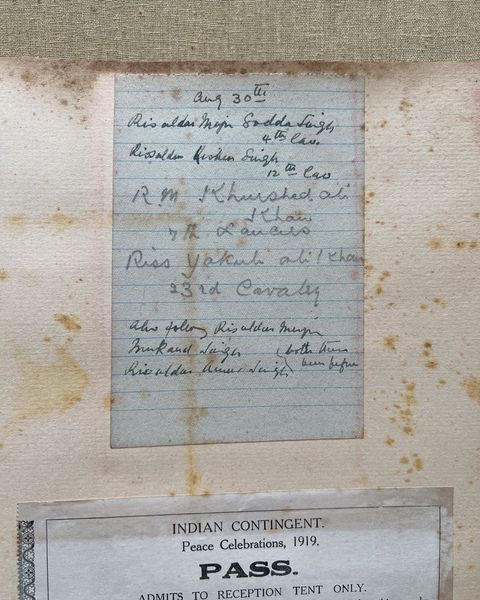 Aug 30th
Risaldar Major Sodda Singh
4th Cav.
Risaldar Kishen Singh
12th Cav
R M Khurshed ali
Khan
7th Lancers
Riss Yakub ali Khan
23rd Cavalry
Also Risaldar Major
Mukand Singh (both
Risaldar Amar Singh)
INDIAN CONTINGENT.
Peace Celebrations, 1919.
PASS.
ADMITS TO RECEPTION TENT ONLY.